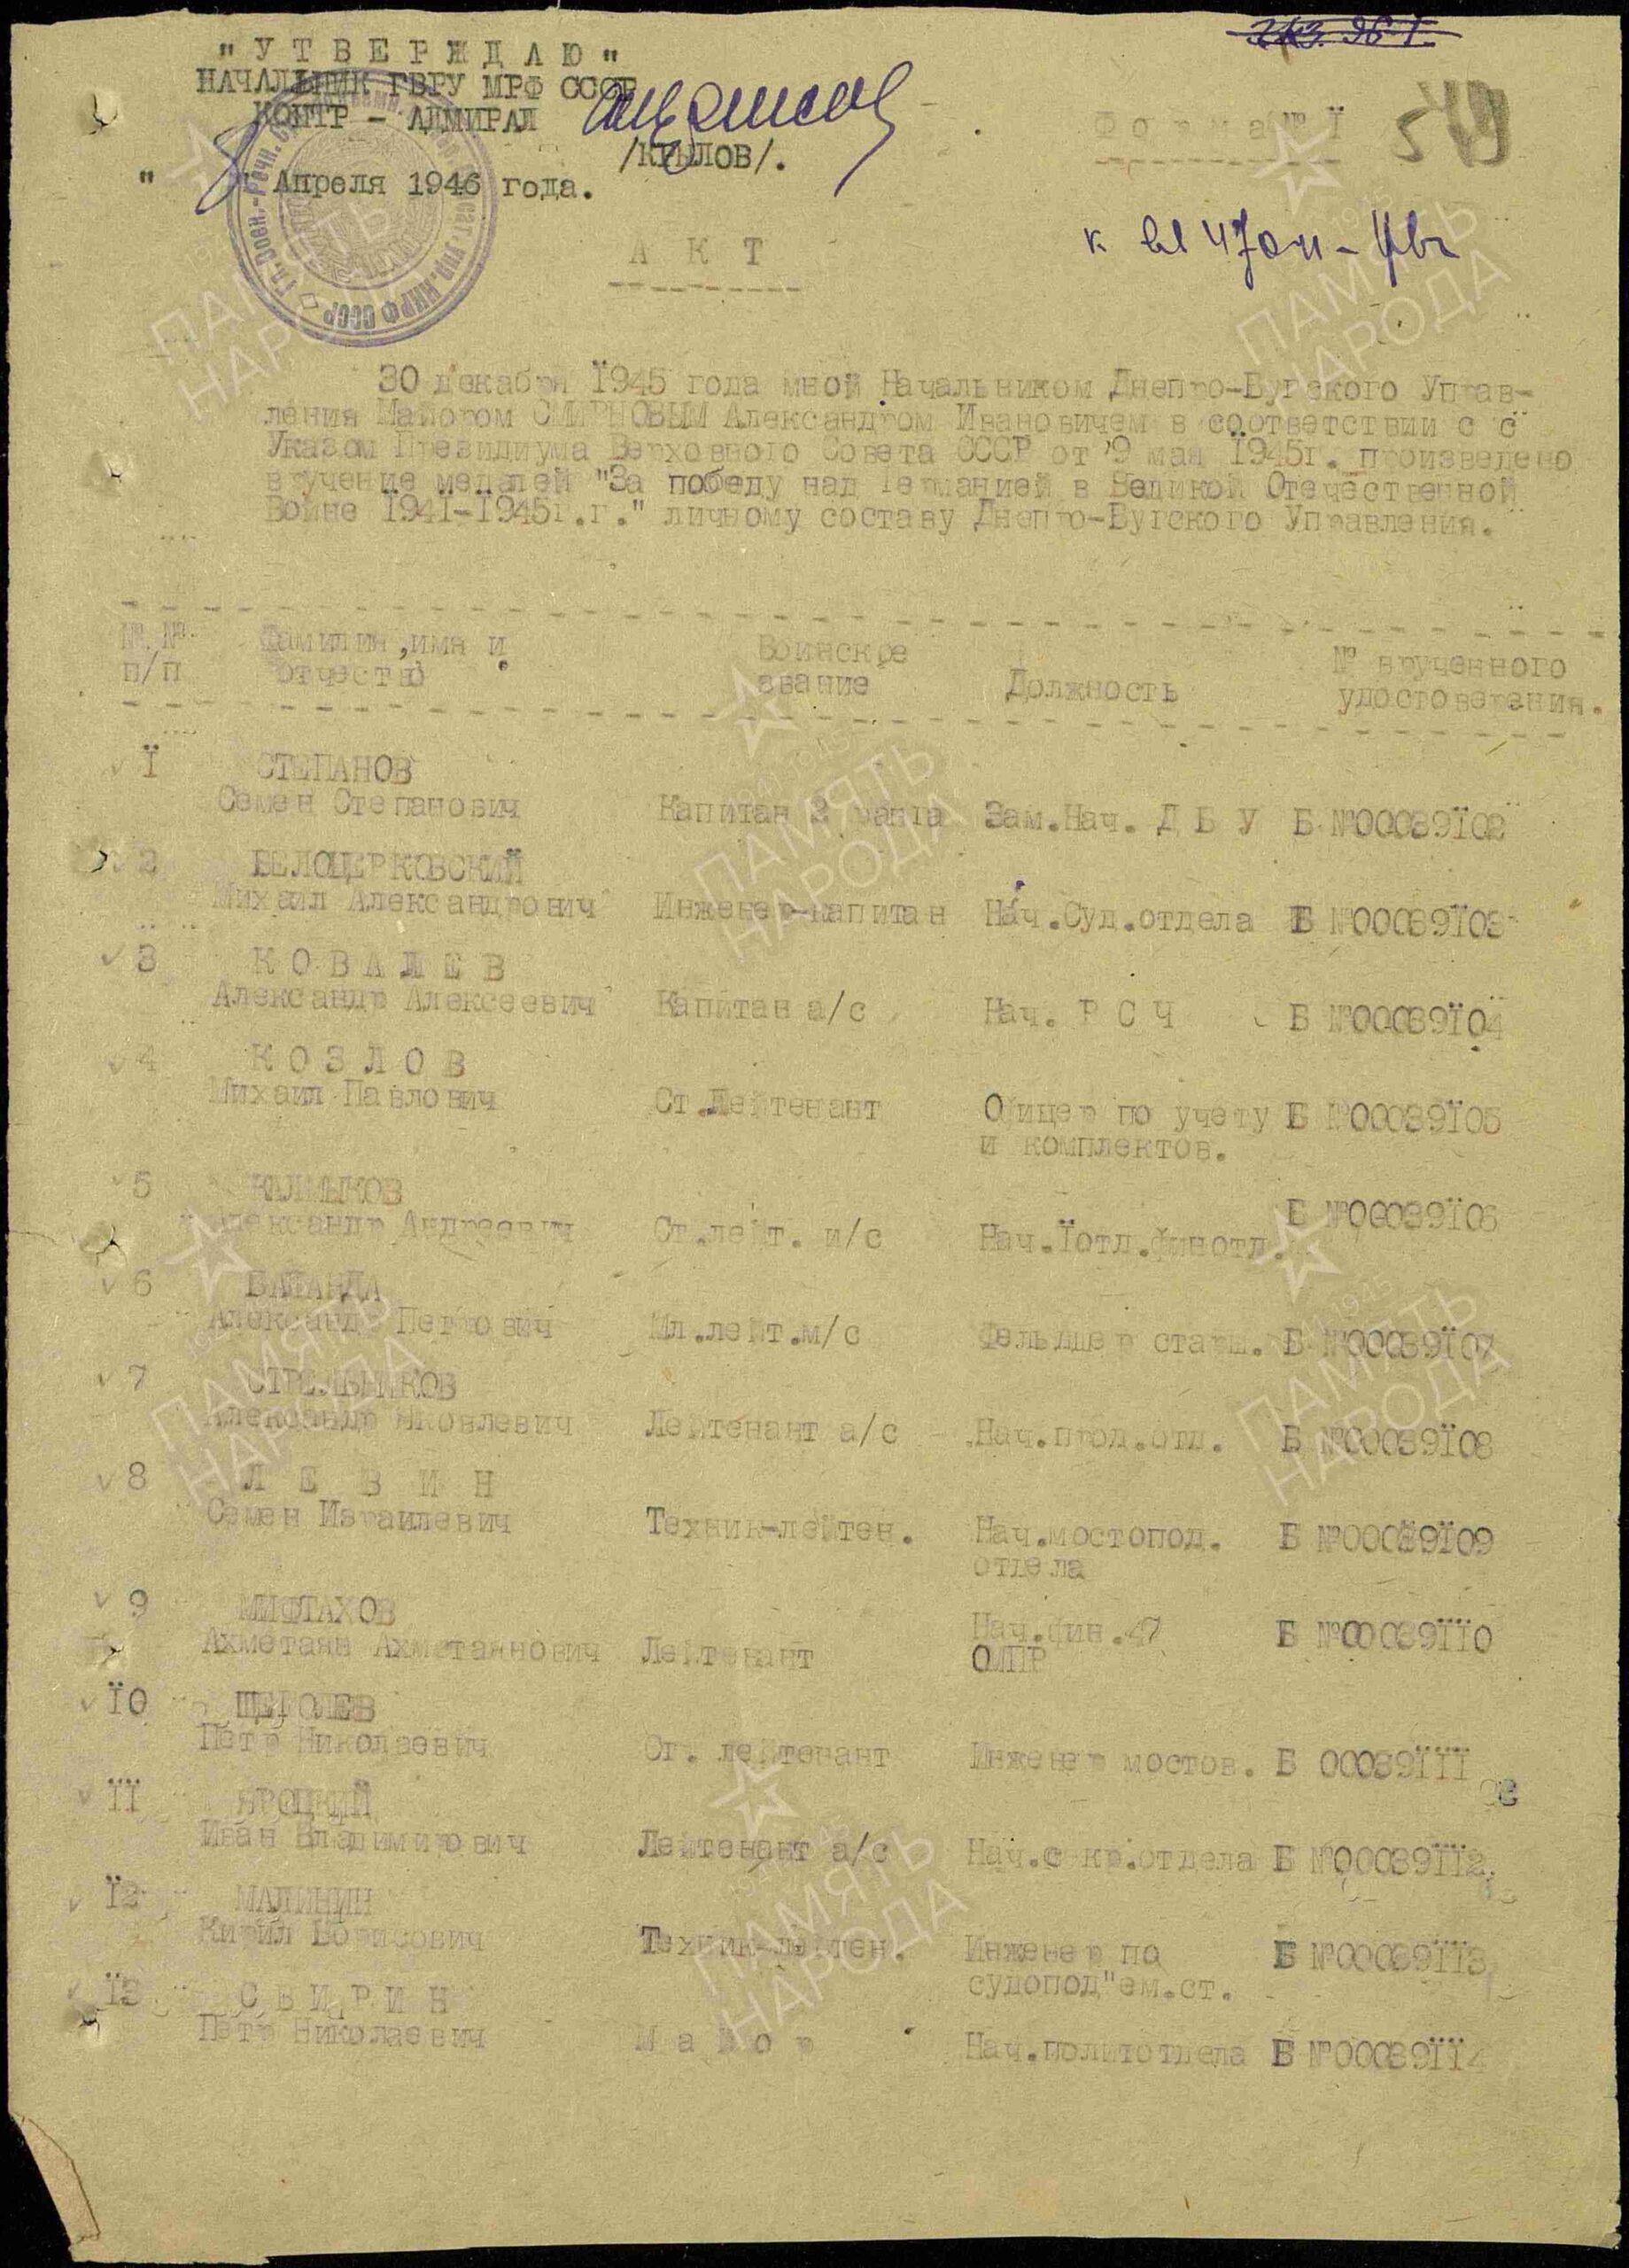 "УТВЕРЖДАЮ"
НАЧАЛЬНИК ГВРУ МРФ СССР
КОНТР - АДМИРАЛ
/КРЫЛОВ/.
" " Апреля 1946 года.
Форма № Ї
549
АКТ
30 декабря Ї945 года мной Начальником Днепро-Бугского Управ-
ления Майором СМИРНОВЫМ Александром Ивановичем в соответствии с с
Указом Президиума Верховного Совета СССР от 9 мая Ї945г. произведено
вручение медалей "За победу над Германией в Великой Отечественной
Войне Ї94Ї-Ї945г.г." личному составу Днепро-Бугского Управления.
№ № Фамилия,имя и Воинское № врученного
п/п отчество звание Должность удостоверения.
Ї СТЕПАНОВ
Семен Степанович Капитан 2 ранга Зам.Нач. Д Б У Б №00039Ї02
2 БЕЛОЦЕРКОВСКИЙ
Михаил Александрович Инженер-капитан Нач.Суд.отдела Б №00039Ї03
3 КОВАЛЕВ
Александр Алексеевич Капитан а/с Нач. Р С Ч Б №00039Ї04
4 КОЗЛОВ
Михаил Павлович Ст.Лейтенант Офицер по учету Б №00039Ї05
и комплектов.
5 КАЛМЫКОВ Б №00039Ї06
Александр Андреевич Ст.лейт. и/с Нач.Їотл.финотд.
6
Александр Петрович Мл.лейт.м/с Фельдшер старш. Б №00039Ї07
7 СТРЕЛЬНИКОВ
Александр Яковлевич Лейтенант а/с Нач.прод.отд. Б №00039Ї08
8 ЛЕВИН
Семен Израилевич Техник-лейтен. Нач.мостопод. Б №00039Ї09
отдела
9 МИФТАХОВ Нач.фин.47 Б №00039ЇЇ0
Ахметаян Ахметаянович Лейтенант ОМПР
Ї0 ЩЕГОЛЕВ
Петр Николаевич Ст. лейтенант Инженер мостов. Б 00039ЇЇЇ
ЇЇ ЯРОЦКИЙ
Иван Владимирович Лейтенант а/с Нач.секр.отдела Б №00039ЇЇ2
Ї2 МАЛИНИН
Кирил Борисович Техник-лейтен. Инженер по Б №00039ЇЇ3
судопод"ем.ст.
Ї3 СВИРИН
Петр Николаевич Майор Нач.политотдела Б №00039ЇЇ4